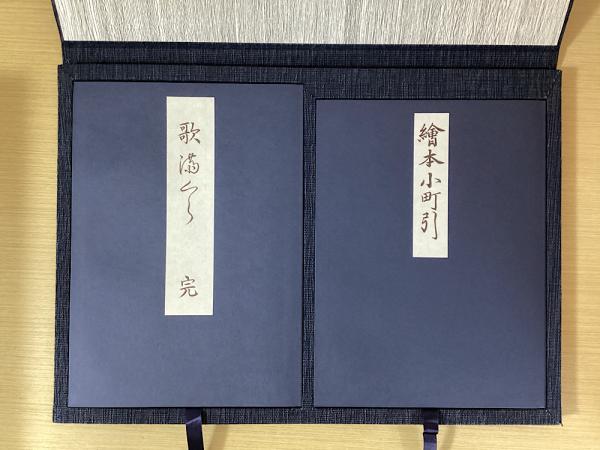 繪本小町引
歌満くら 完